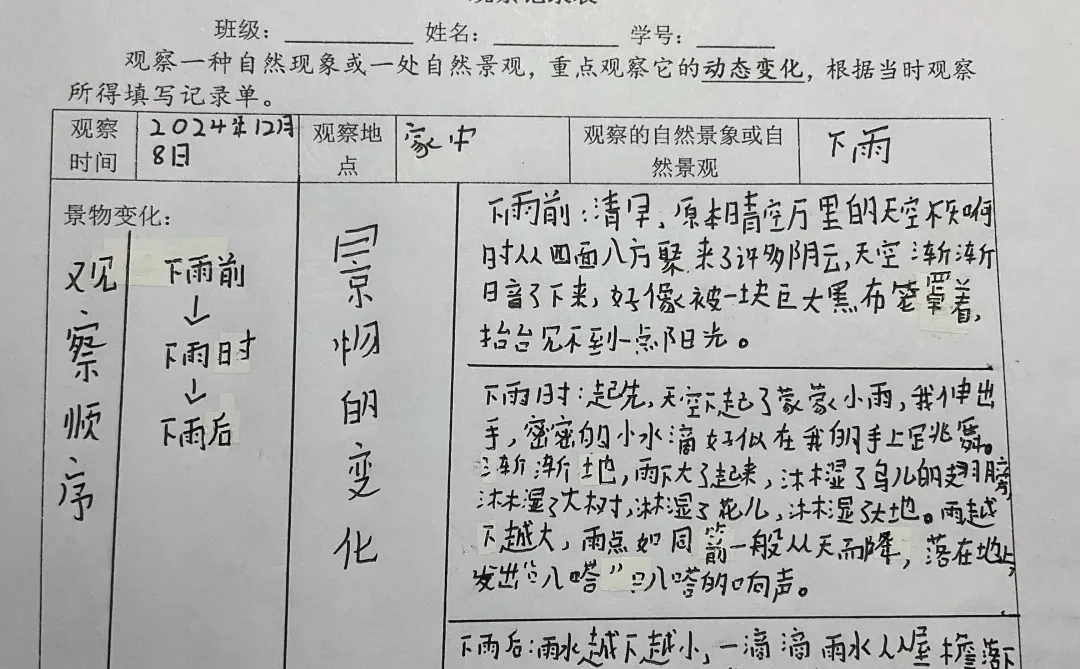 观察记录表
班级：________ 姓名：________ 学号：________
观察一种自然现象或一处自然景观，重点观察它的动态变化，根据当时观察
所得填写记录单。
观察时间 2024年12月8日 观察地点 家中 观察的自然景象或自然景观 下雨
景物变化：
观察顺序
下雨前
↓
下雨时
↓
下雨后
景物的变化
下雨前：清早，原本晴空万里的天空不知何
时从四面八方聚来了许多阴云，天空渐渐
暗了下来，好像被一块巨大黑布笼罩着，
抬台见不到一点阳光。
下雨时：起先，天空下起了蒙蒙小雨，我伸出
手，密密的小水滴好似在我的手上跳舞。
渐渐地，雨下大了起来，淋湿了鸟儿的翅膀，
淋湿了大树，淋湿了花儿，淋湿了大地。雨越
下越大，雨点如同箭一般从天而降，落在地上，
发出“叭嗒”叭嗒的响声。
下雨后：雨水越下越小，一滴滴雨水从屋檐落下